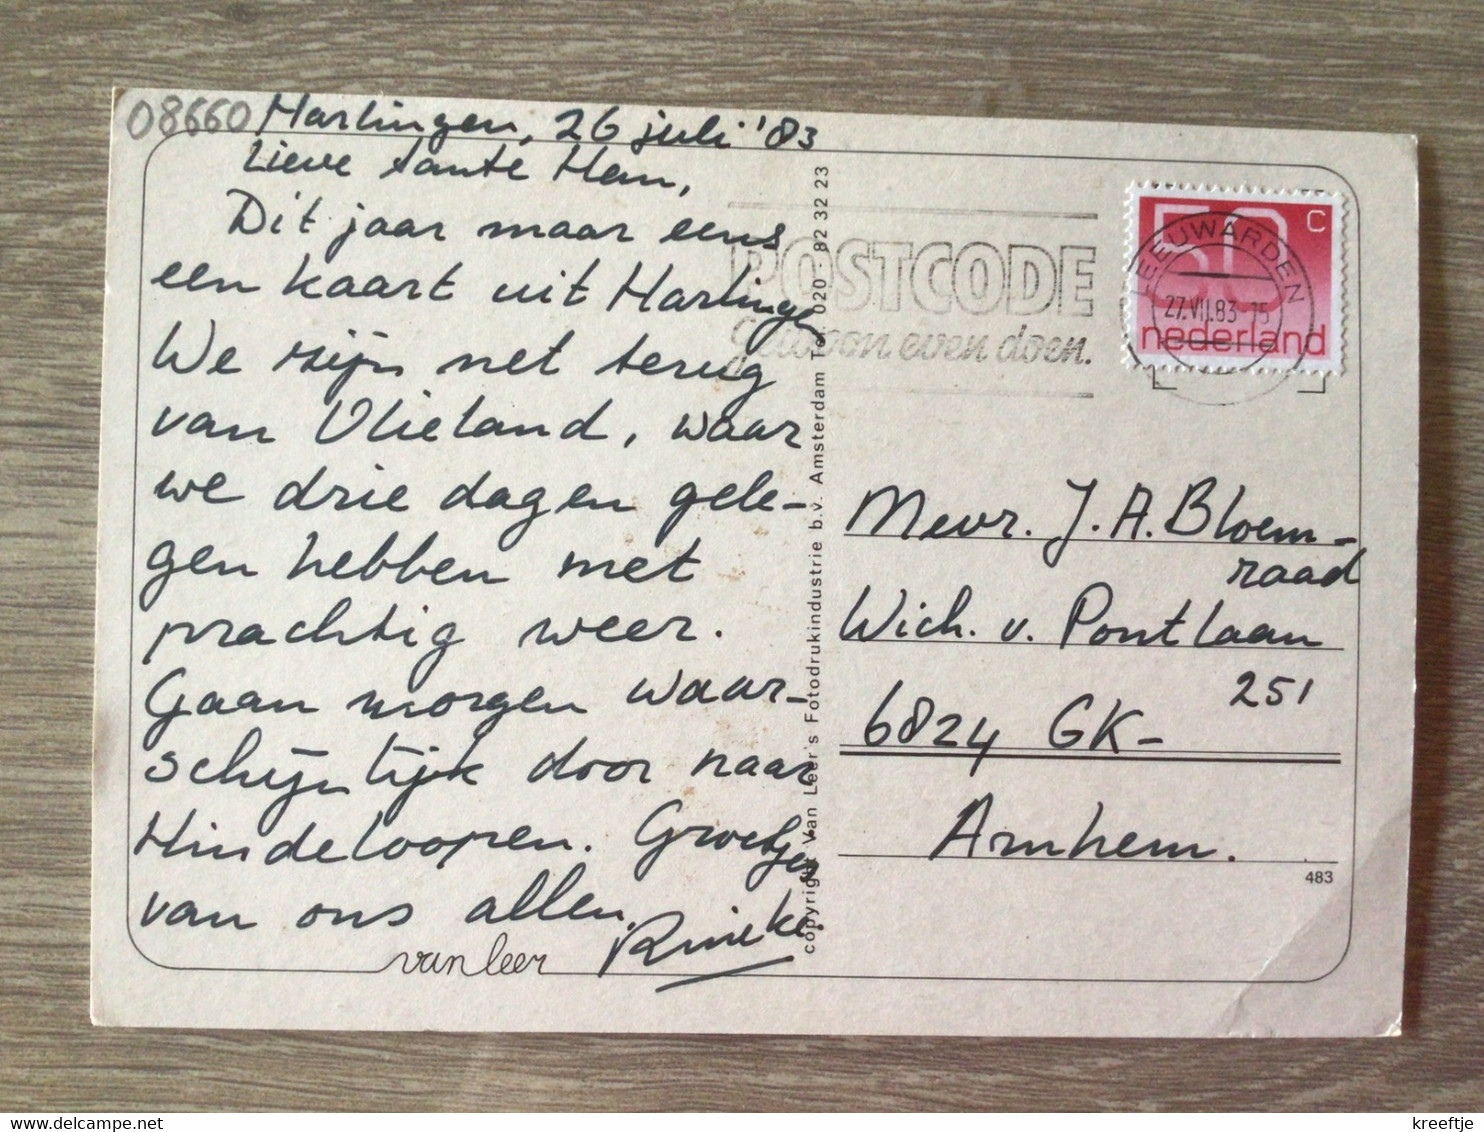 08660 Harlingen, 26 juli '83
Lieve tante Han,
Dit jaar maar eens
een kaart uit Harlingen
We zijn net terug
van Vlieland, waar
we drie dagen gele-
gen hebben met
prachtig weer.
Gaan morgen waar-
schijnlijk door naar
Hindeloopen. Groetjes
van ons allen.
Rineke.
van leer
copyright Van Leer's Fotodrukindustrie b.v. Amsterdam Tel. 020 - 82 32 23
POSTCODE
gewoon even doen.
LEEUWARDEN
27.VII.83-15
50 c
nederland
Mevr. J.A. Bloem-
raad
Wich. v. Pontlaan
251
6824 GK-
Arnhem.
483
www.delcampe.net
kreeftje